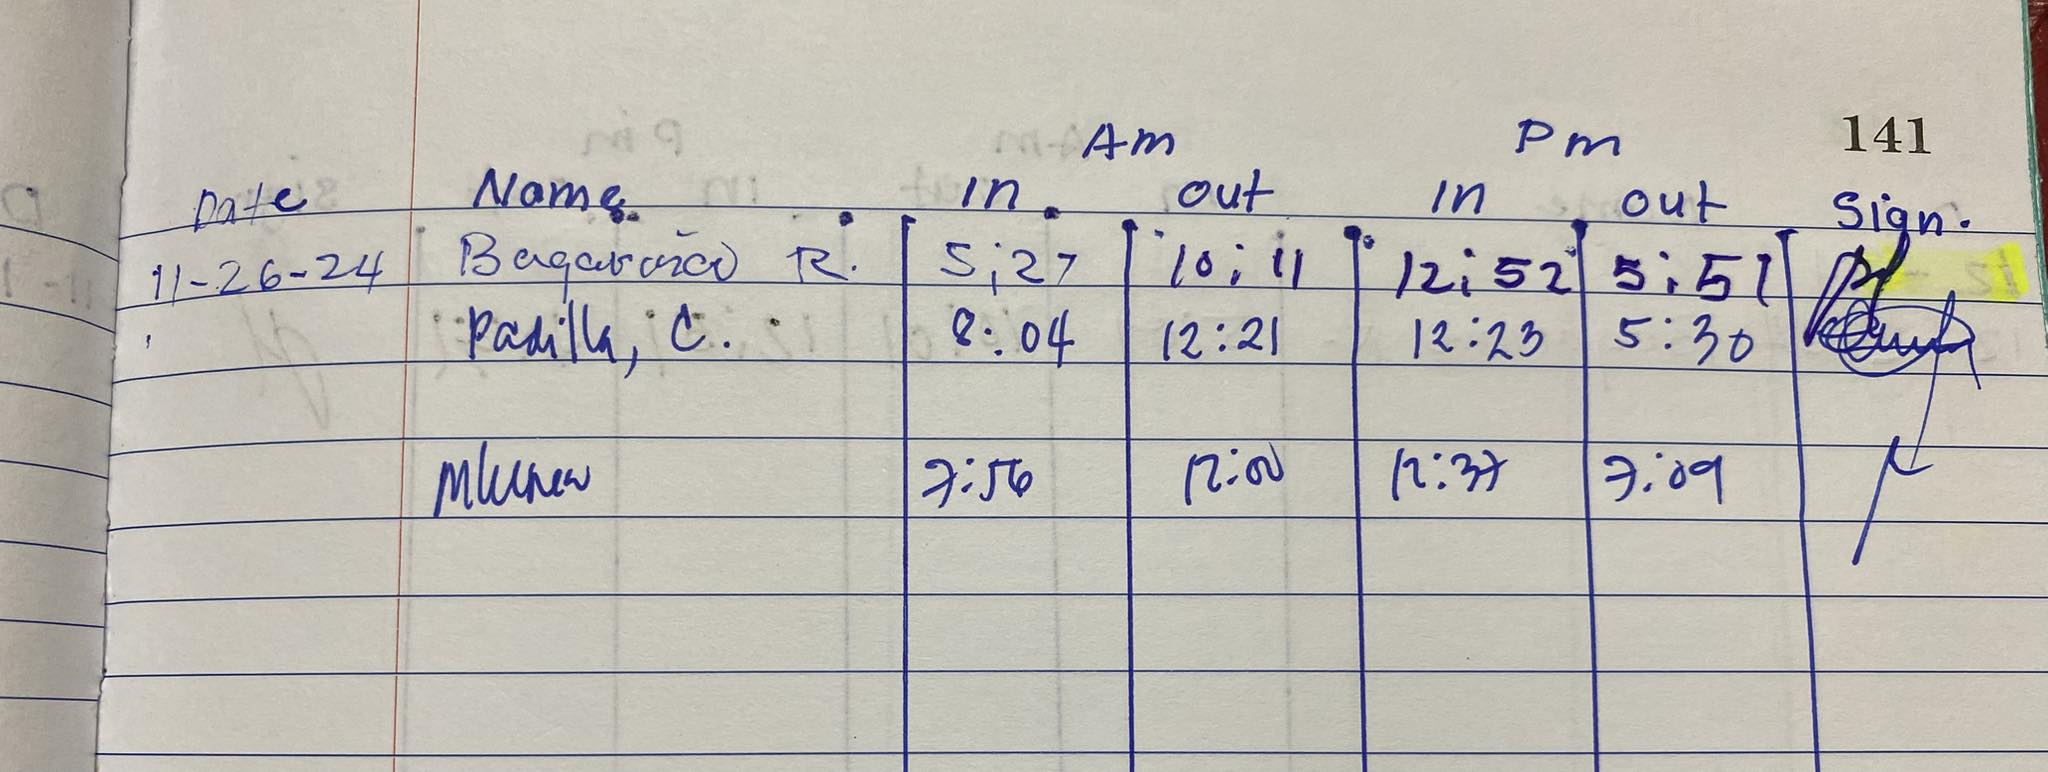 141
Am Pm
Date Name In out In out Sign.
11-26-24 R. 5:27 10:11 12:52 5:51
Padilla, C. 8:04 12:21 12:23 5:30
7:56 12:00 12:37 7:09